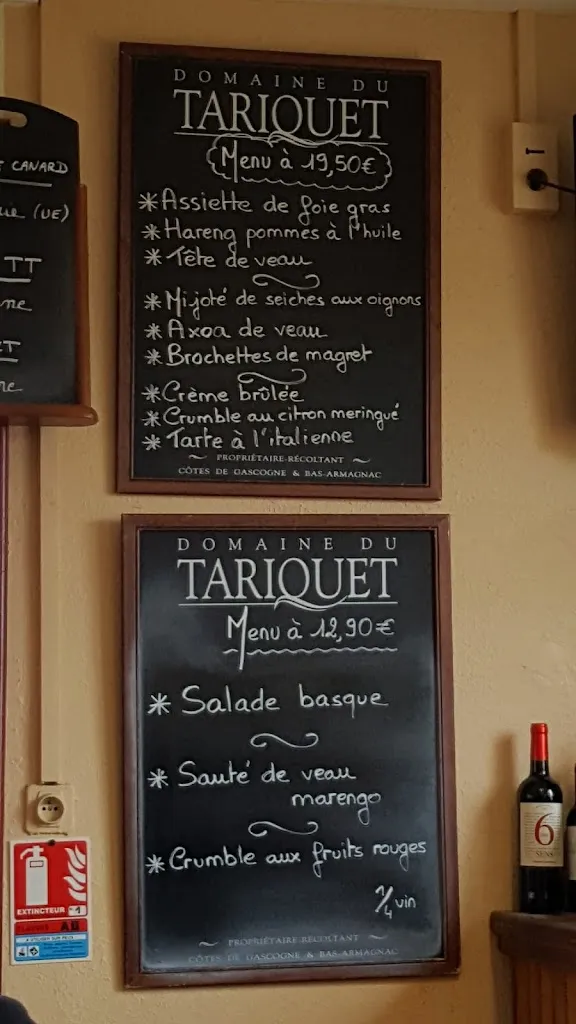 CANARD
(UE)
TT
DOMAINE DU
TARIQUET
Menu à 19,50€
* Assiette de foie gras
* Hareng pommes à l'huile
* Tête de veau
* Mijoté de seiches aux oignons
* Axoa de veau
* Brochettes de magret
* Crème brûlée
* Crumble au citron meringué
* Tarte à l'italienne
~ PROPRIÉTAIRE-RÉCOLTANT ~
CÔTES DE GASCOGNE & BAS-ARMAGNAC
DOMAINE DU
TARIQUET
Menu à 12,90€
* Salade basque
* Sauté de veau
marengo
* Crumble aux fruits rouges
1/4 vin
~ PROPRIÉTAIRE-RÉCOLTANT ~
CÔTES DE GASCOGNE & BAS-ARMAGNAC
EXTINCTEUR
CLASSES AB
6
SENS